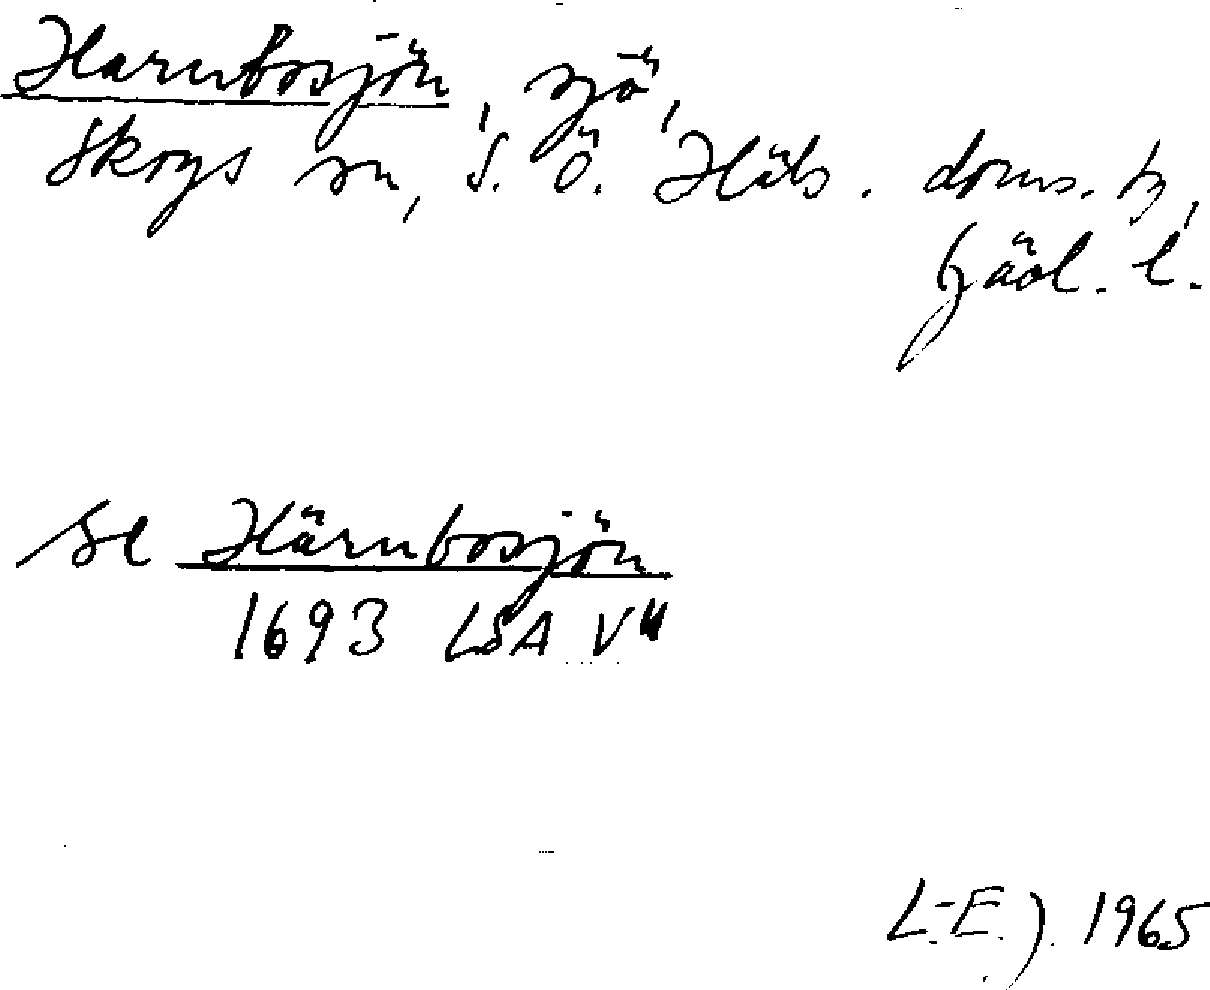 Harnbosjön, sjö,
Skogs sn, S. Ö. Häls. doms. h,
Gävl. l.
se Härnbosjön
1693 LSA V 4
L.-E. J. 1965